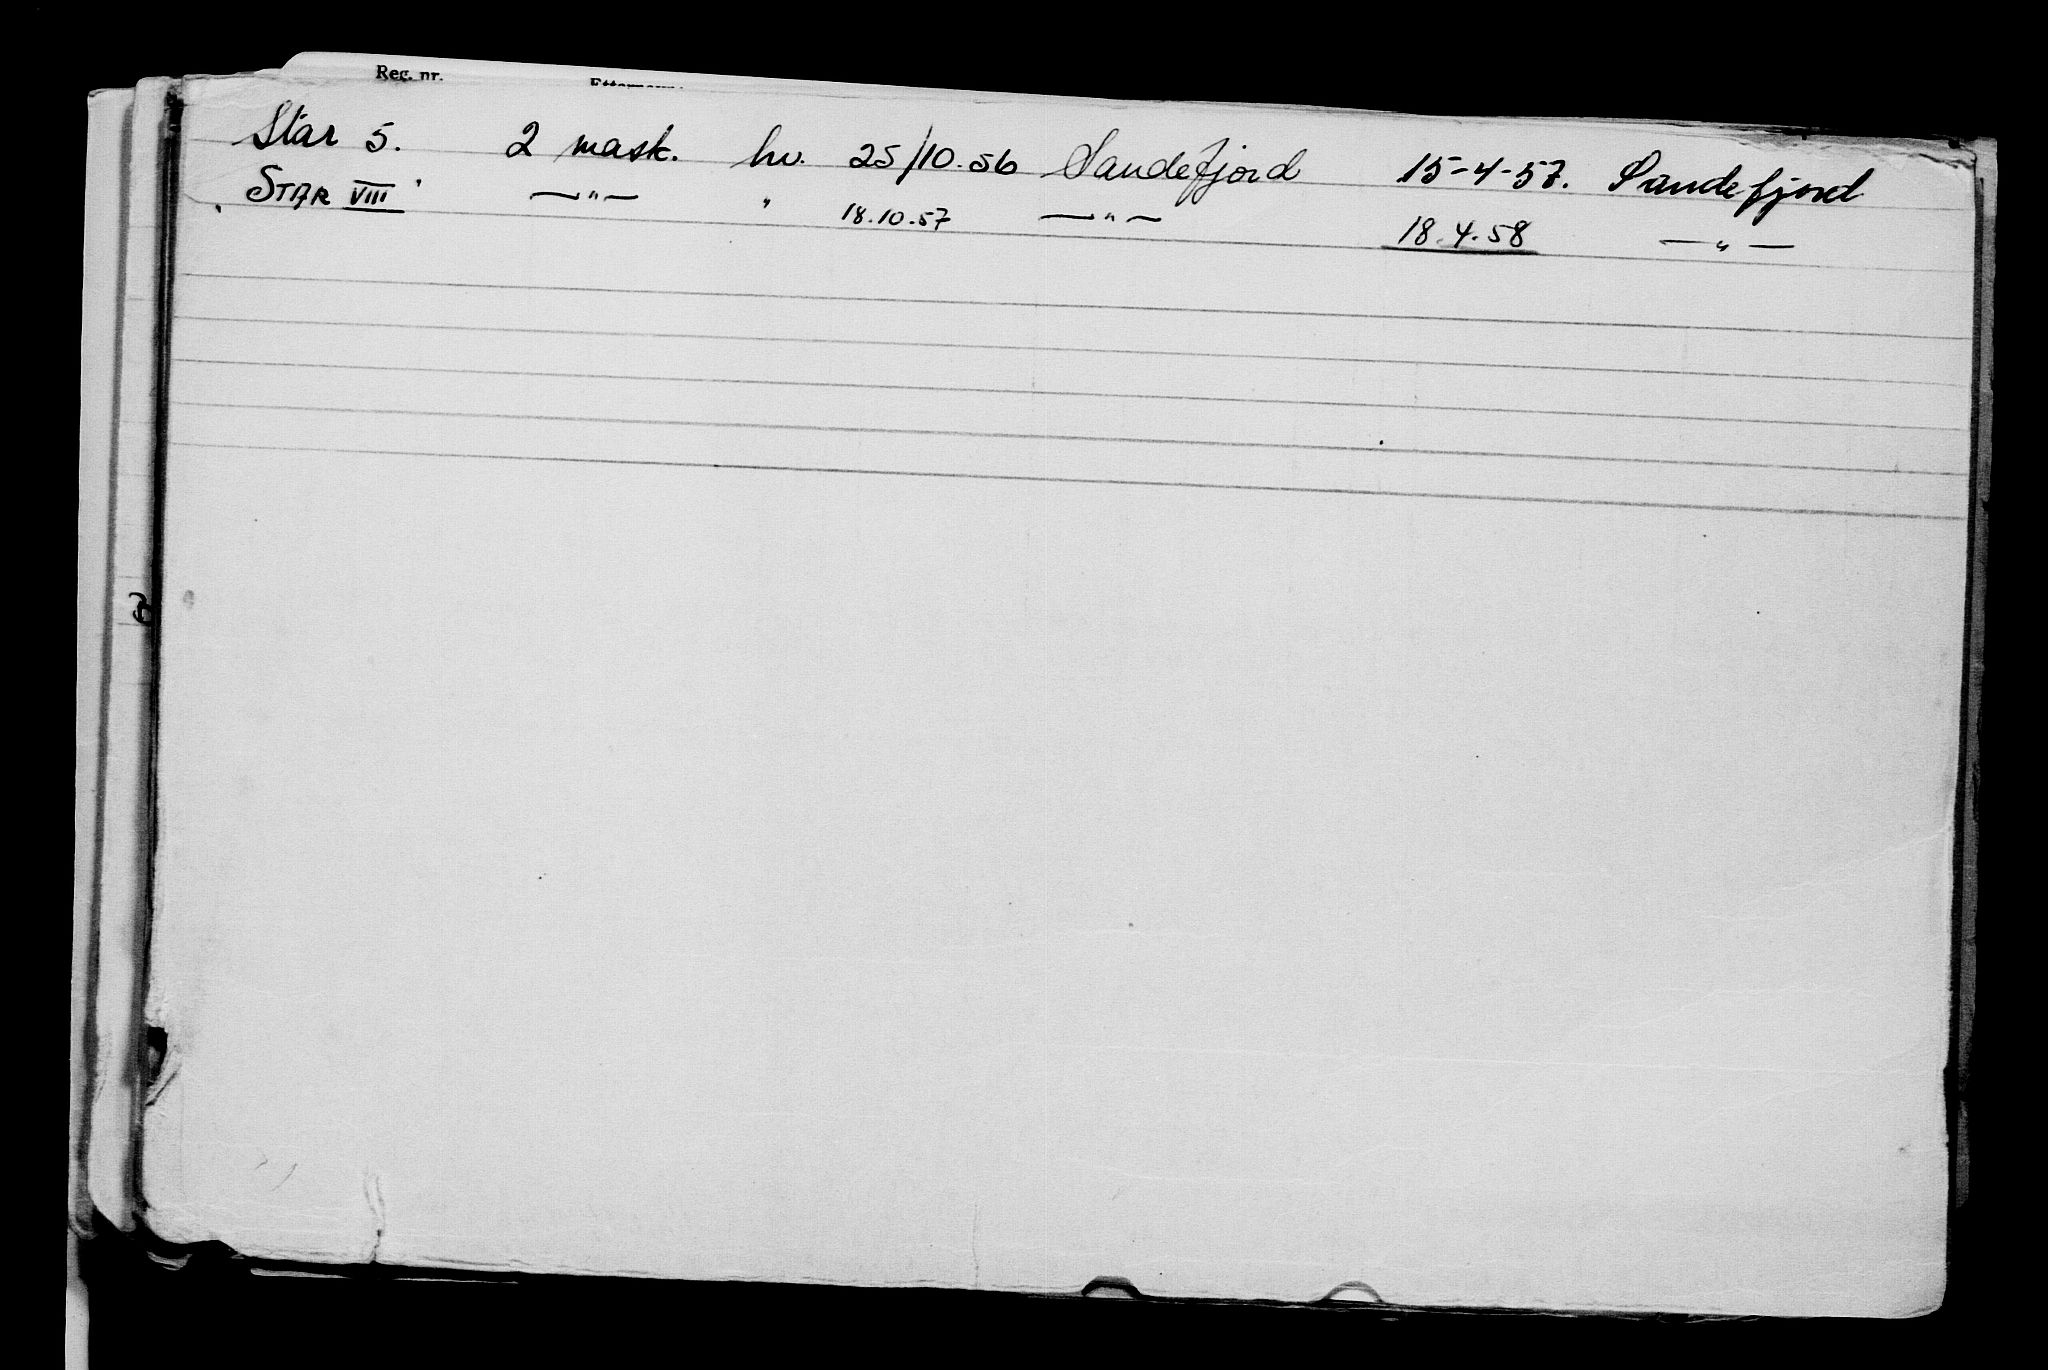 Reg. nr.
Star 5. 2 mask. hv. 25/10.56 Sandefjord 15-4-57. Sandefjord
STAR VIII —"— " 18.10.57 —"— 18.4.58 —"—